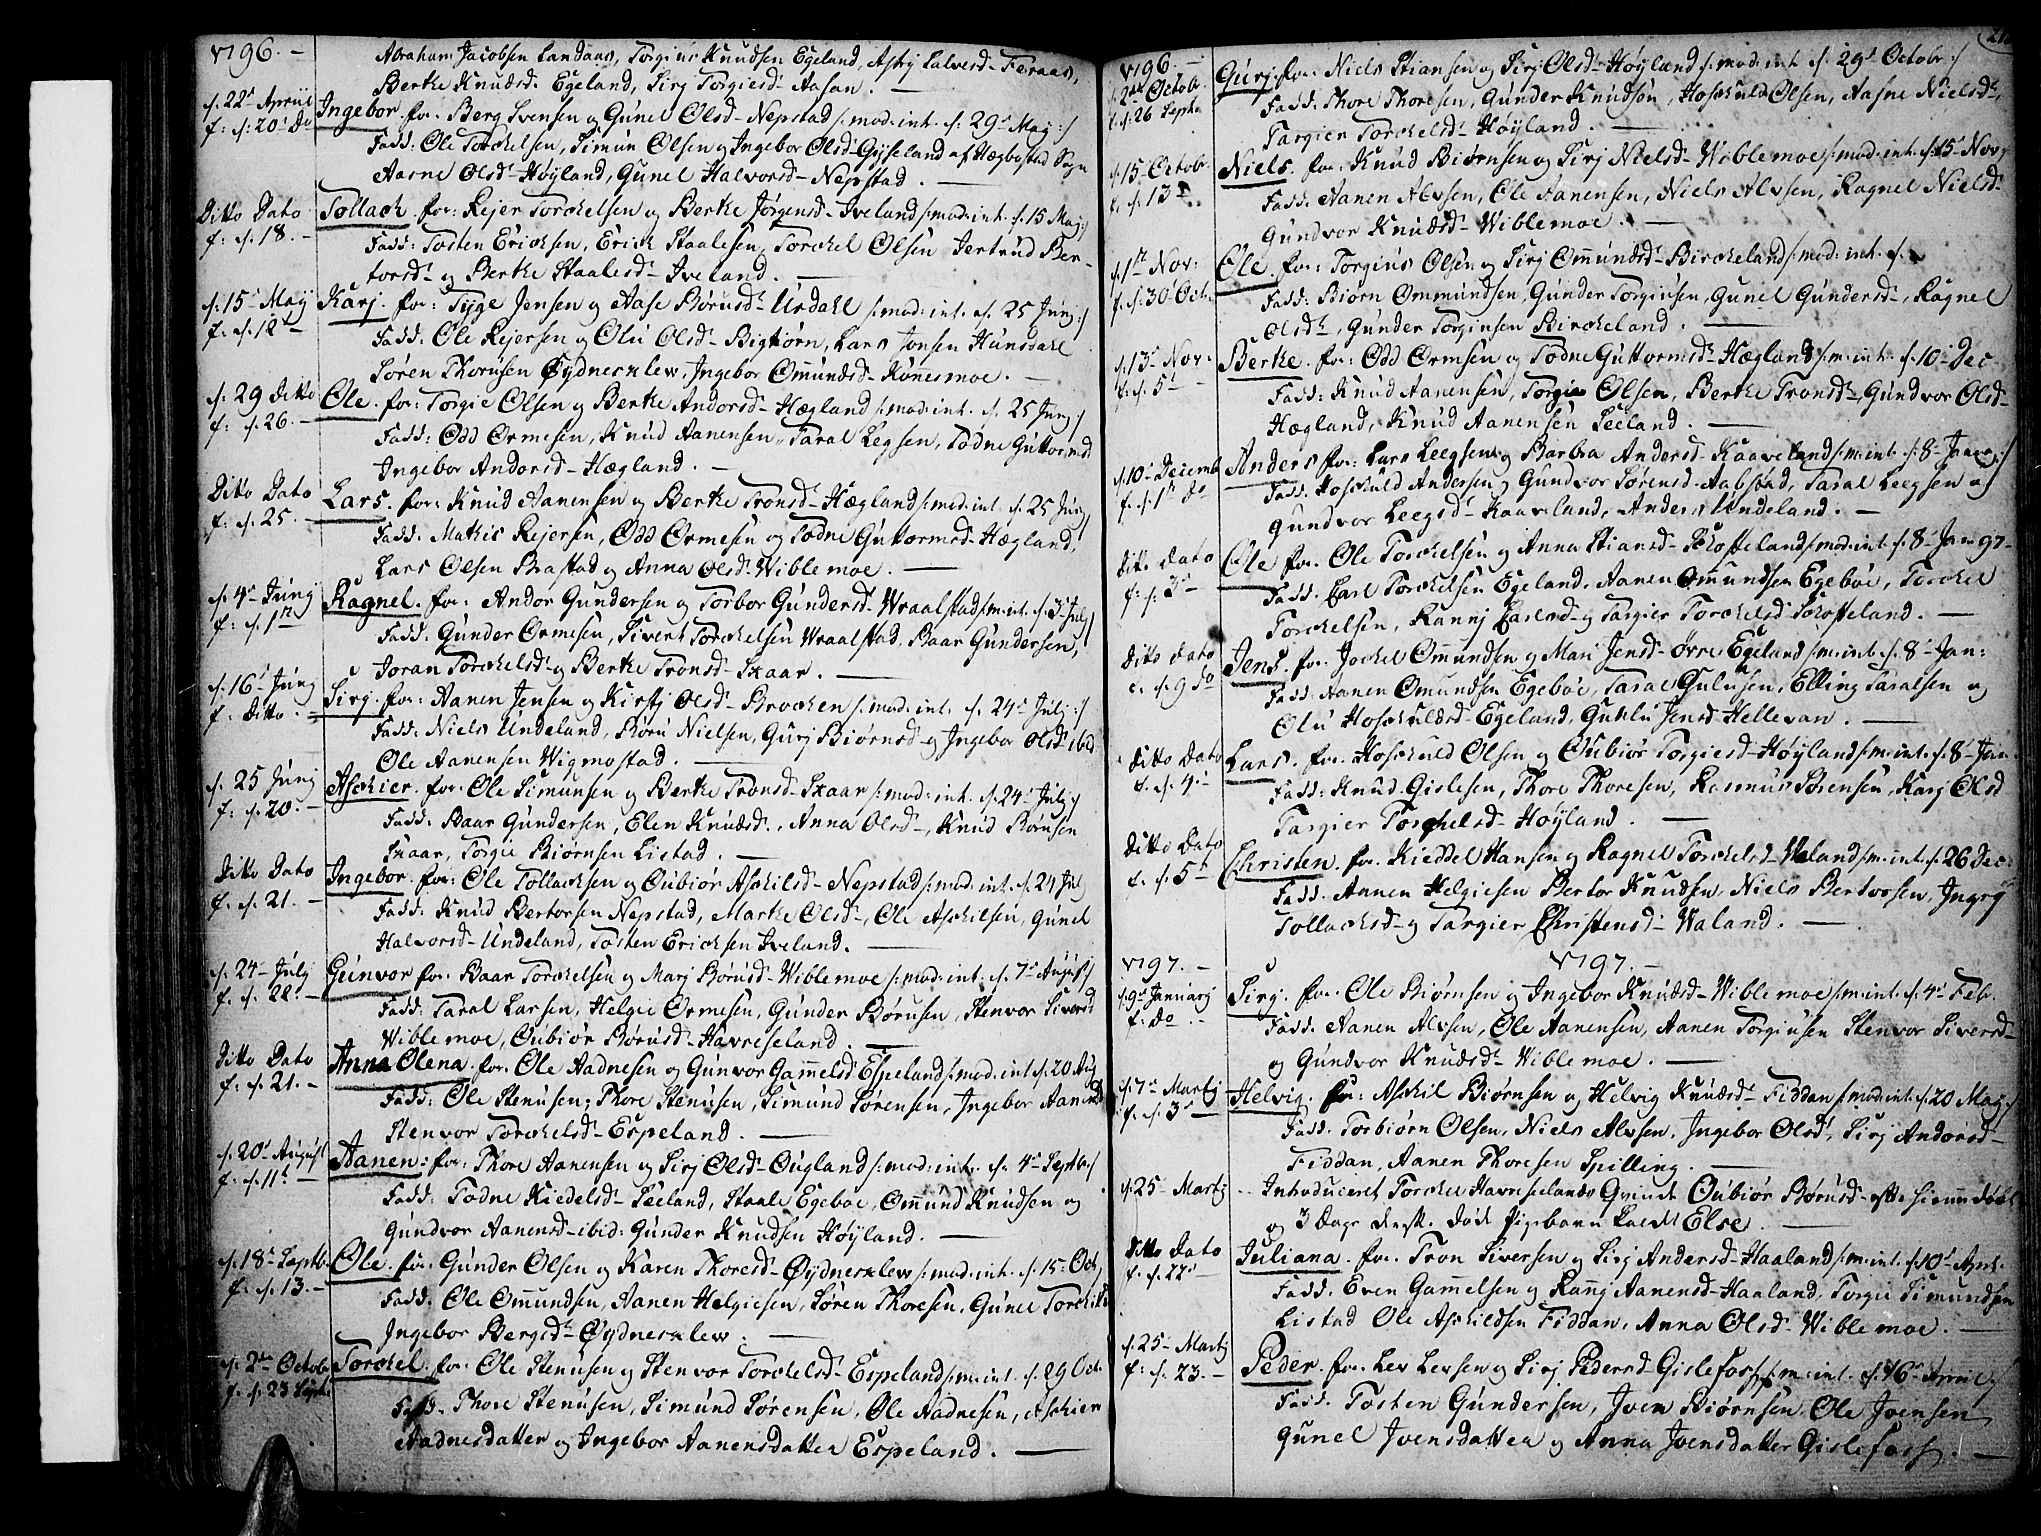 1796. –
Abraham Jacobsen Landaas, Torgius Knudsen Egeland, Asbj Salvesd– Feraas,
Berthe Knudsd. Egeland, Sirj Torgiesd– Aasan. –
s. 22de Aprill Ingebor. for. Berg Svensen og Gunel Olsd– Nepstad /:mod: int. s. 29de Maj:/
f: s: 20de Do
Fadd: Ole Torchelsen, Simun Olsen og Ingebor Olsd– Gyseland af Hægbostad Sogn
Aasne Olsd– Høyland, Gunel Halvorsd– Nepstad. –
Ditto Dato Tollach. for: Rejer Torchelsen og Berthe Jørgensd– Iveland /:mod: int. s. 15 Maj:/
f: s. 18. –
Fadd: Tosten Erichsen, Erich Staalesen, Torchel Olsen Jertrud Ber-
torsd– og Berthe Staalesd– Iveland. –
s. 15de Maj Karj. for: Tyge Jensen og Aase Børusd– Urdahl /:mod: int. s. 25 Junj:/
f: s. 12te –
Fadd: Ole Rejersen og Olu Olsd– Bigtiørn, Lars Jonsen Hunsdahl
Søren Thorusen Øydneskлew, Ingebor Omundsd– Konnesmoe. –
s. 29 Ditto Ole. for: Torgie Olsen og Berthe Andorsd– Hægland /:mod: int. s. 25 Junj:/
f: s. 26. –
Fadd: Odd Ormesen, Knud Aanensen, Taral Legsen, Todne Guttormsd
Ingebor Andorsd– Hægland. –
Ditto Dato Lars. for: Knud Aanensen og Berthe Tronsd– Hægland /:mod: int. s. 25 Junj/
f: s. 25. –
Fadd: Mathis Rejersen, Odd Ormesen og Todne Guttormsd– Hægland,
Lars Olsen Brastad og Anna Olsd– Wiblemoe. –
s. 4de Junj Ragnel. for: Andor Gundersen og Torbor Gundersd– Wraalstad /:m: int. s. 3de Julj/
f: s: 1te
Fadd: Gunder Ormesen, Sivert Torchelsen Wraalstad. Baar Gundersen,
Joran Torchelsd– og Berthe Tronsd– Skaar. –
s. 16de Junj Sirj. for: Aanen Jensen og Kirstj Olsd– Brochen /:mod: int. s. 24de Julj:/
f. Ditto. –
Fadd: Niels Undeland, Børu Nielsen, Gurj Biørnsd– og Ingebor Olsd– ibid
Ole Aanensen Wigmostad. –
s. 25 Junj Aschier. for. Ole Simunsen og Berthe Tronsd– Skaar /:mod: int. s. 24de Julj:/
f: s. 20. –
Fadd: Baar Gundersen, Elen Knudsd., Anna Olsd–, Knud Børusen
Skaar, Torgie Biørnsen Listad. –
Ditto Dato Ingebor. for: Ole Tollachsen og Oubiør Aschilsd– Nepstad /:mod: int. s. 24 Julj
f: s. 21. –
Fadd: Knud Bertorsen Nepstad, Marthe Olsd–, Ole Aschilsen, Gunel
Halvorsd– Undeland, Tosten Erichsen Iveland. –
s. 24– Julj Gunvor. for: Baar Torchelsen og Marj Børusd– Wiblemoe /:mod: int. s. 7de August/
f. s. 22. –
Fadd: Taral Larsen, Helgie Ormesen, Gunder Børusen, Stenvor Siversd
Wiblemoe, Oubiør Børusd– Havreseland. –
Ditto Dato Anna Olena. for. Ole Aadnesen og Gunvor Gammelsd Espeland /:mod: int s. 20 Aug
f. s. 21. –
Fadd: Ole Stenusen, Thore Stenusen, Simund Sørensen, Ingebor Aanensd
Stenvor Torchelsd– Espeland. –
s. 20de August Aanen. for: Thore Aanensen og Sirj Olsd– Ougland /:mod: int. s. 4de Septb:/
f. s. 11te –
Fadd: Todne Kiedelsd– Seeland, Staale Egeboe, Ommund Knudsen og
Gundvor Aanensd– ibid: Gunder Knudsen Høyland. –
s. 18de Septb. Ole. for: Gunder Olsen og Karen Thoresd– Øydnesklew /:mod: int. s. 15– Oct:/
f. s. 13. –
Fadd. Ole Ommundsen, Aanen Helgiesen, Søren Thoresen, Gunel Torchils
Ingebor Bergsd– Øydnesklew. –
s. 2den Octob: Torchel. for. Ole Stenusen og Stenvor Torchelsd– Espeland /:m: int. s. 29 Oct.
f. s. 23 Septb:
Fadd. Thore Stenusen, Simund Sørensen, Ole Aadnesen, Aschier
Aadnesdatter og Ingebor Aanensdatter Espeland. –
1796. –
s. 2den Octob. Gurj. for. Niels Stiansen og Sirj Olsd– Høyland /:mod: int s. 29de Octobr:/
f. s. 26 Septb.
Fadd. Thore Thoresen, Gunder Knudsen, Hoschuld Olsen, Aasne Nielsd–,
Targier Torchelsd– Høyland. –
s. 15– Octob. Niels. for. Knud Biørnsen og Sirj Nielsd– Wiblemoe /:mod: int. s. 15– Nov:/
f. s. 13 –
Fadd. Aanen Alvsen, Ole Aanensen, Niels Alvsen, Ragnel Nielsd–
Gundvor Knudsd– Wiblemoe. –
s. 1te Nov: Ole. for: Torgius Olsen og Sirj Ommundsd– Bircheland /:mod: int. s.
f. s. 30 Oct.
Fadd: Biørn Ommundsen, Gunder Torgiusen, Gunel Gundersd–, Ragnel
Olsd–, Gunder Torgiusen Bircheland. –
s. 13de Nov: Berthe. for. Odd Ormsen og Todne Guttormsd– Hægland /:m: int. s. 10– Dec–
f: s. 5te –
Fadd: Knud Aanensen, Torgie Olsen, Berthe Tronsd–, Gundvor Olsd–
Hægland, Knud Aanensen Seeland. –
s. 10– Decemb Anders for: Lars Leegsen og Barbra Andersd– Kaaveland /:m: int. s. 8– Janv:/
f. s. 1te Do
Fadd. Hoschuld Andersen, Gundvor Sørensd– Aabstad, Taral Leegsen og
Gundvor Leegsd– Kaaveland, Anders Undeland. –
Ditto Dato Ole for. Ole Torchelsen og Anna Stiansd– Schofteland /:mod: int. s. 8– Jan 97–
f: s. 3de –
Fadd. Carl Torchelsen Egeland, Aanen Omundsen Egeboe, Torchel
Torchelsen, Rannj Carlsd– og Targier Torchelsd– Schofteland. –
Ditto Dato Jens. for. Jochel Ommundsen og Mari Jensd– øvre Egeland /:m: int. s. 8– Jan:
f. s. 9 Do
Fadd: Aanen Omundsen Egeboe, Taral Gulusen, Elling Taralsen og
Olu Hoschuldsd– Egeland, Gunlu Jensd– Hellevan. –
Ditto Dato Lars. for. Hoschuld Olsen og Oubiør Torgiesd– Høyland /:m: int. s. 8– Jan.
f. s. 4de
Fadd: Knud Gislesen, Thore Thoresen, Rasmus Sørensen, Karj Olsd
Targier Torchelsd– Høyland. –
Ditto Dato Christen. for. Kieddel Hansen og Ragnel Torchelsd– Waland /:m: int. s. 26 Dec.
f. s. 5te
Fadd. Aanen Helgiesen Bertor Knudsen. Niels Bertorsen, Ingrj
Tollachsd– og Targier Christensd– Waland. –
1797. – 1797. –
s. 9de Januarj Sirj. for. Ole Biørnsen og Ingebor Knudsd– Wiblemoe /:m: int. s. 4de Feb.
f. Do. –
Fadd. Aanen Alvsen, Ole Aanensen, Aanen Torgiusen Stenvor Siversd–
og Gundvor Knudsd– Wiblemoe. –
s. 7de Martj Helvig. for: Aschil Biørnsen og Helvig Knudsd– Fiddan /:mod: int. s. 20 Maj:/
f. s. 3de –
Fadd. Torbiørn Olsen, Niels Alvsen. Ingebor Olsd–, Sirj Andorsd–
Fiddan, Aanen Thoresen Spilling. –
s. 25– Martj – Introduceret Torchel Havreselands Qvinde Oubiør Børusd– efter hiemmedøbt
og 3 Dage dereft. død Pigebarn kaldt Else. –
Ditto Dato Juliana. for. Tron Siversen og Sirj Andersd– Haaland /:m: int. s. 10de April.
f. s. 22de –
Fadd. Even Gammelsen og Rannj Aanensd– Haaland, Torgie Simundsen
Listad Ole Aschildsen Fiddan, Anna Olsd– Wiblemoe. –
s. 25– Martj Peder. for. Lev Levsen og Sirj Pedersd– Gislefoss /:m: int. s. 16de April./
f: s. 23. –
Fadd. Tosten Gundersen, Joen Biørnsen. Ole Joensen
Gunel Joensdatter og Anna Joensdatter Gislefoss. –